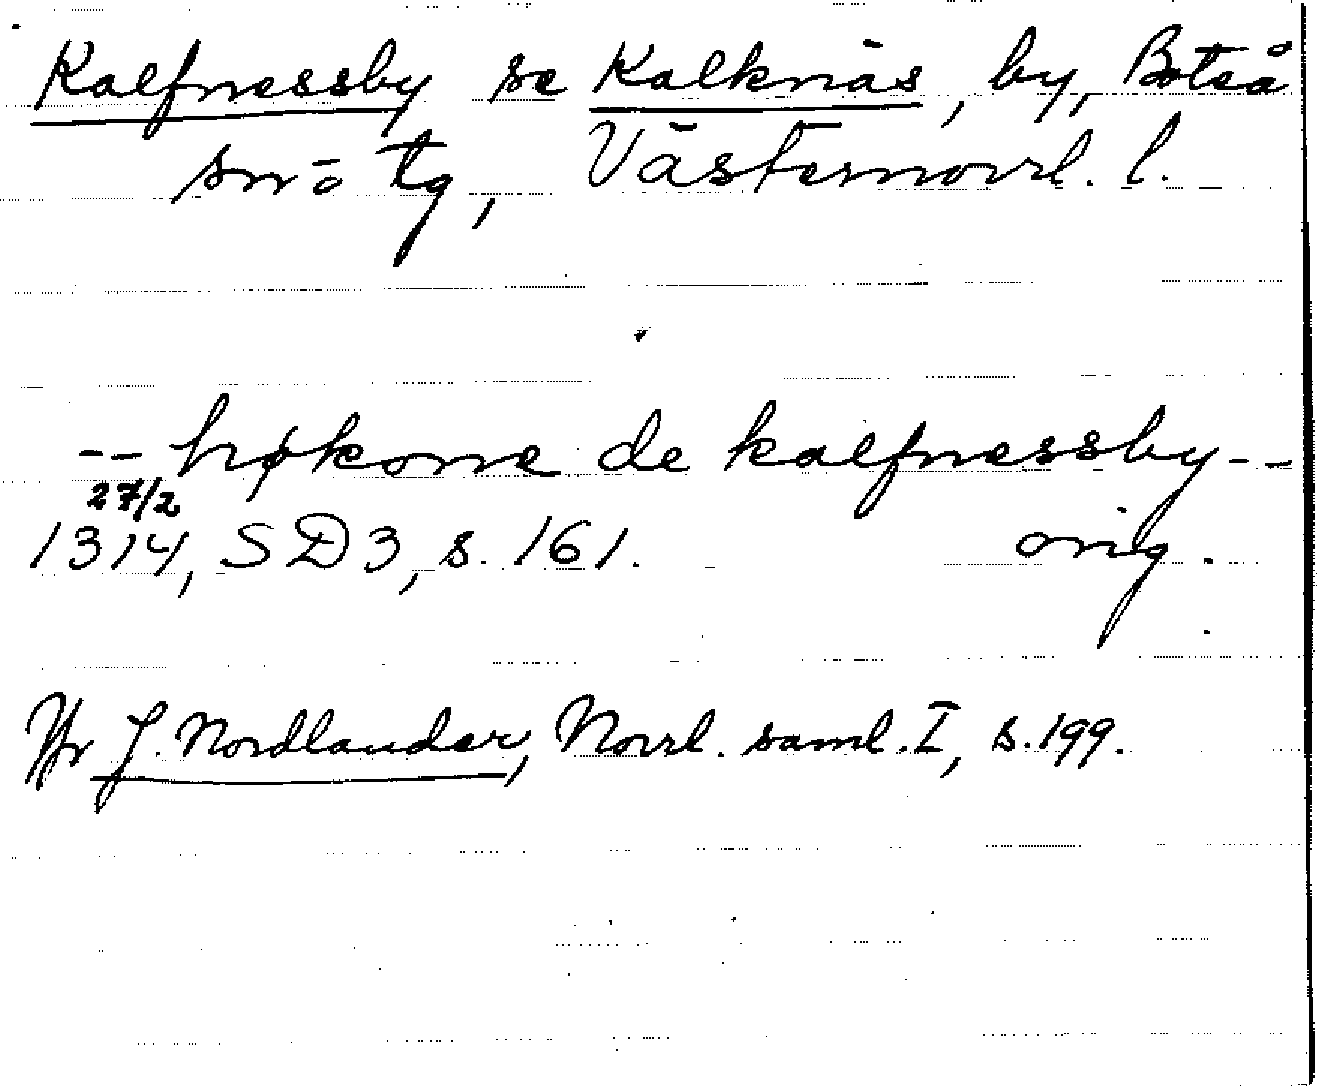 Kalfnessby se Kalknäs, by, Boteå
sn o tg, Västernorrl. l.
-- høkone de kalfnessby--
27/2
1314, SD3, s. 161. orig.
Jfr J. Nordlander, Norrl. saml. I, s. 199.